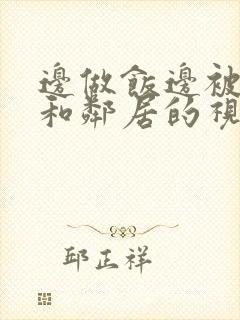 邊做飯邊被
和鄰居的視
邱正祥